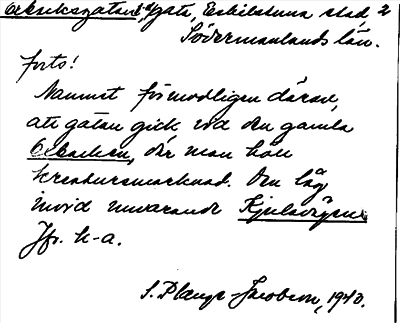 Oxbacksgatan, gata, Eskilstuna stad, 2
Södermanlands län.
forts!
Namnet förmodligen därav,
att gatan gick vid den gamla
Oxbacken, där man höll
kreatursmarknad. Den låg
invid nuvarande
Jfr. k-a.
S. Plenge-Jacobson, 1940.